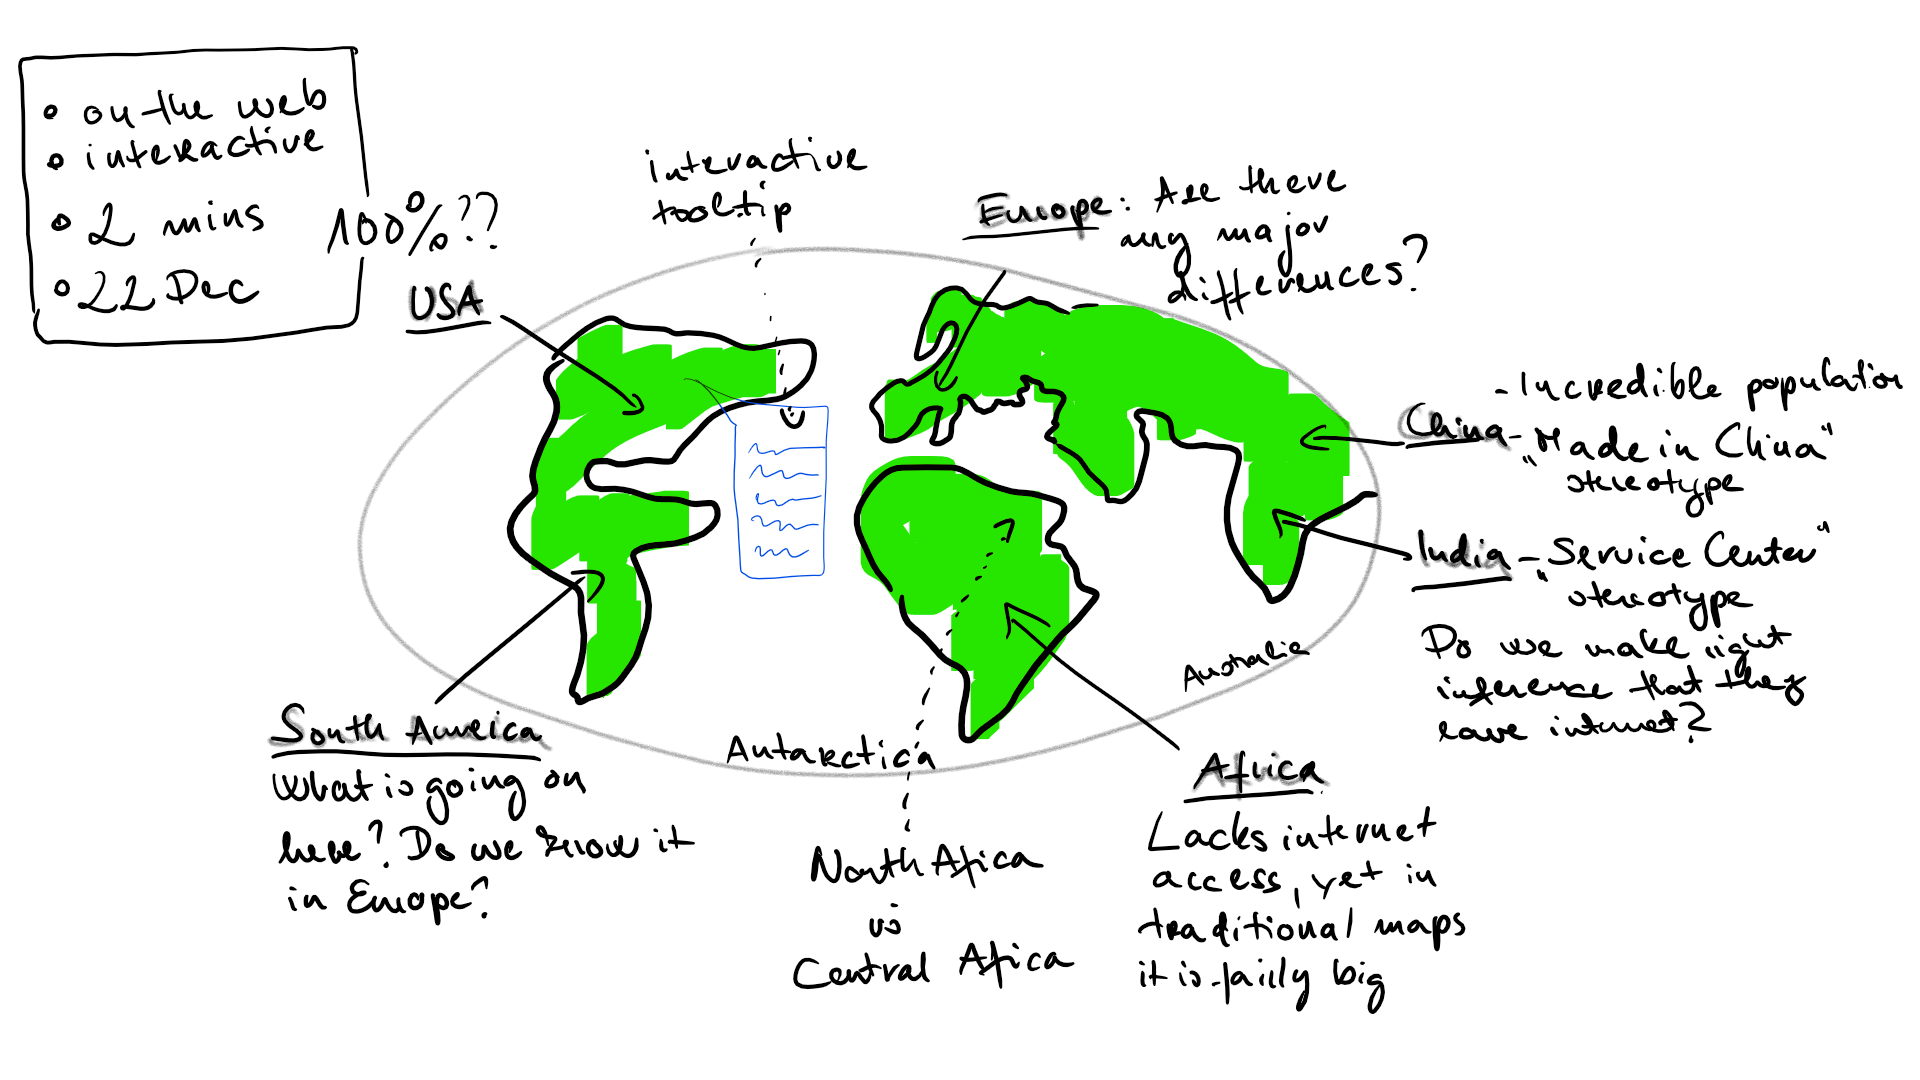 • on the web
• interactive
• 2 mins
• 22 Dec
100%??
USA
interactive
tooltip
Europe: Are there
any major
differences?
- Incredible population
China - "Made in China"
stereotype
India - "Service Center"
stereotype
Do we make right
inference that they
have internet?
Australia
Antarctica
South America
What is going on
here? Do we know it
in Europe?
North Africa
vs
Central Africa
Africa
Lacks internet
access, yet in
traditional maps
it is fairly big